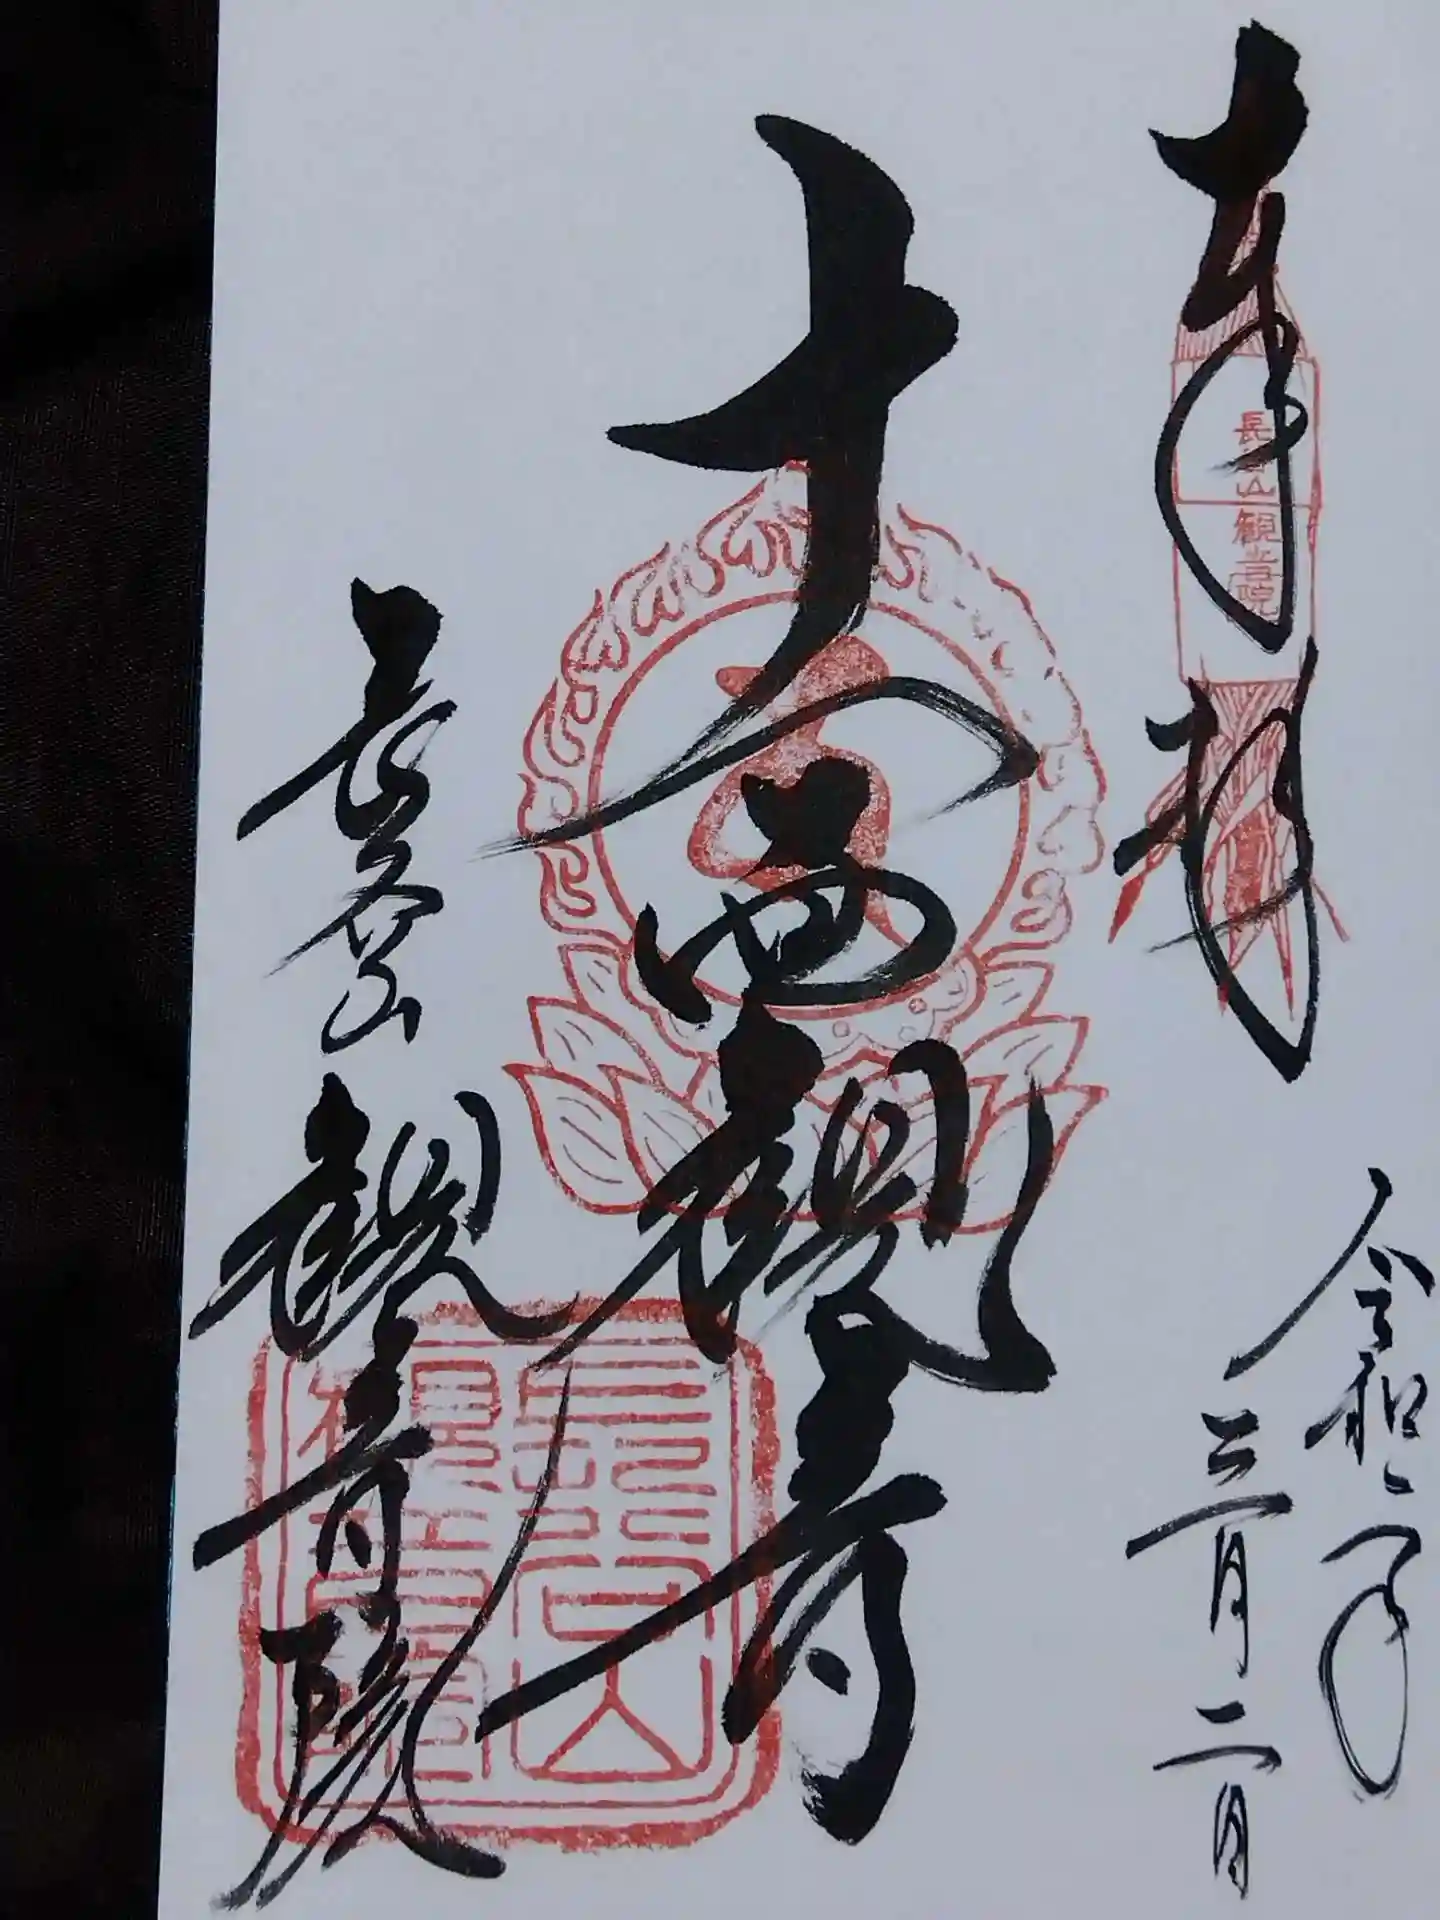 奉拝
長谷山観音院
令和二年
三月二日
十一面観音
長谷山
観音院
長谷山
観音院